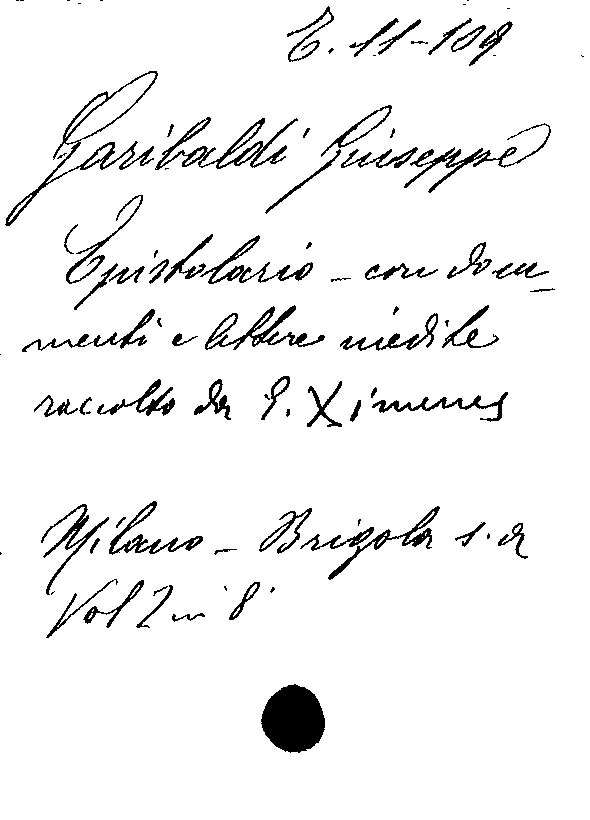 E. 11-109
Garibaldi Giuseppe
Epistolario - con docu-
menti e lettere inedite
raccolto da E. Ximenes
Milano - Brigola s. a
Vol 2 in 8°